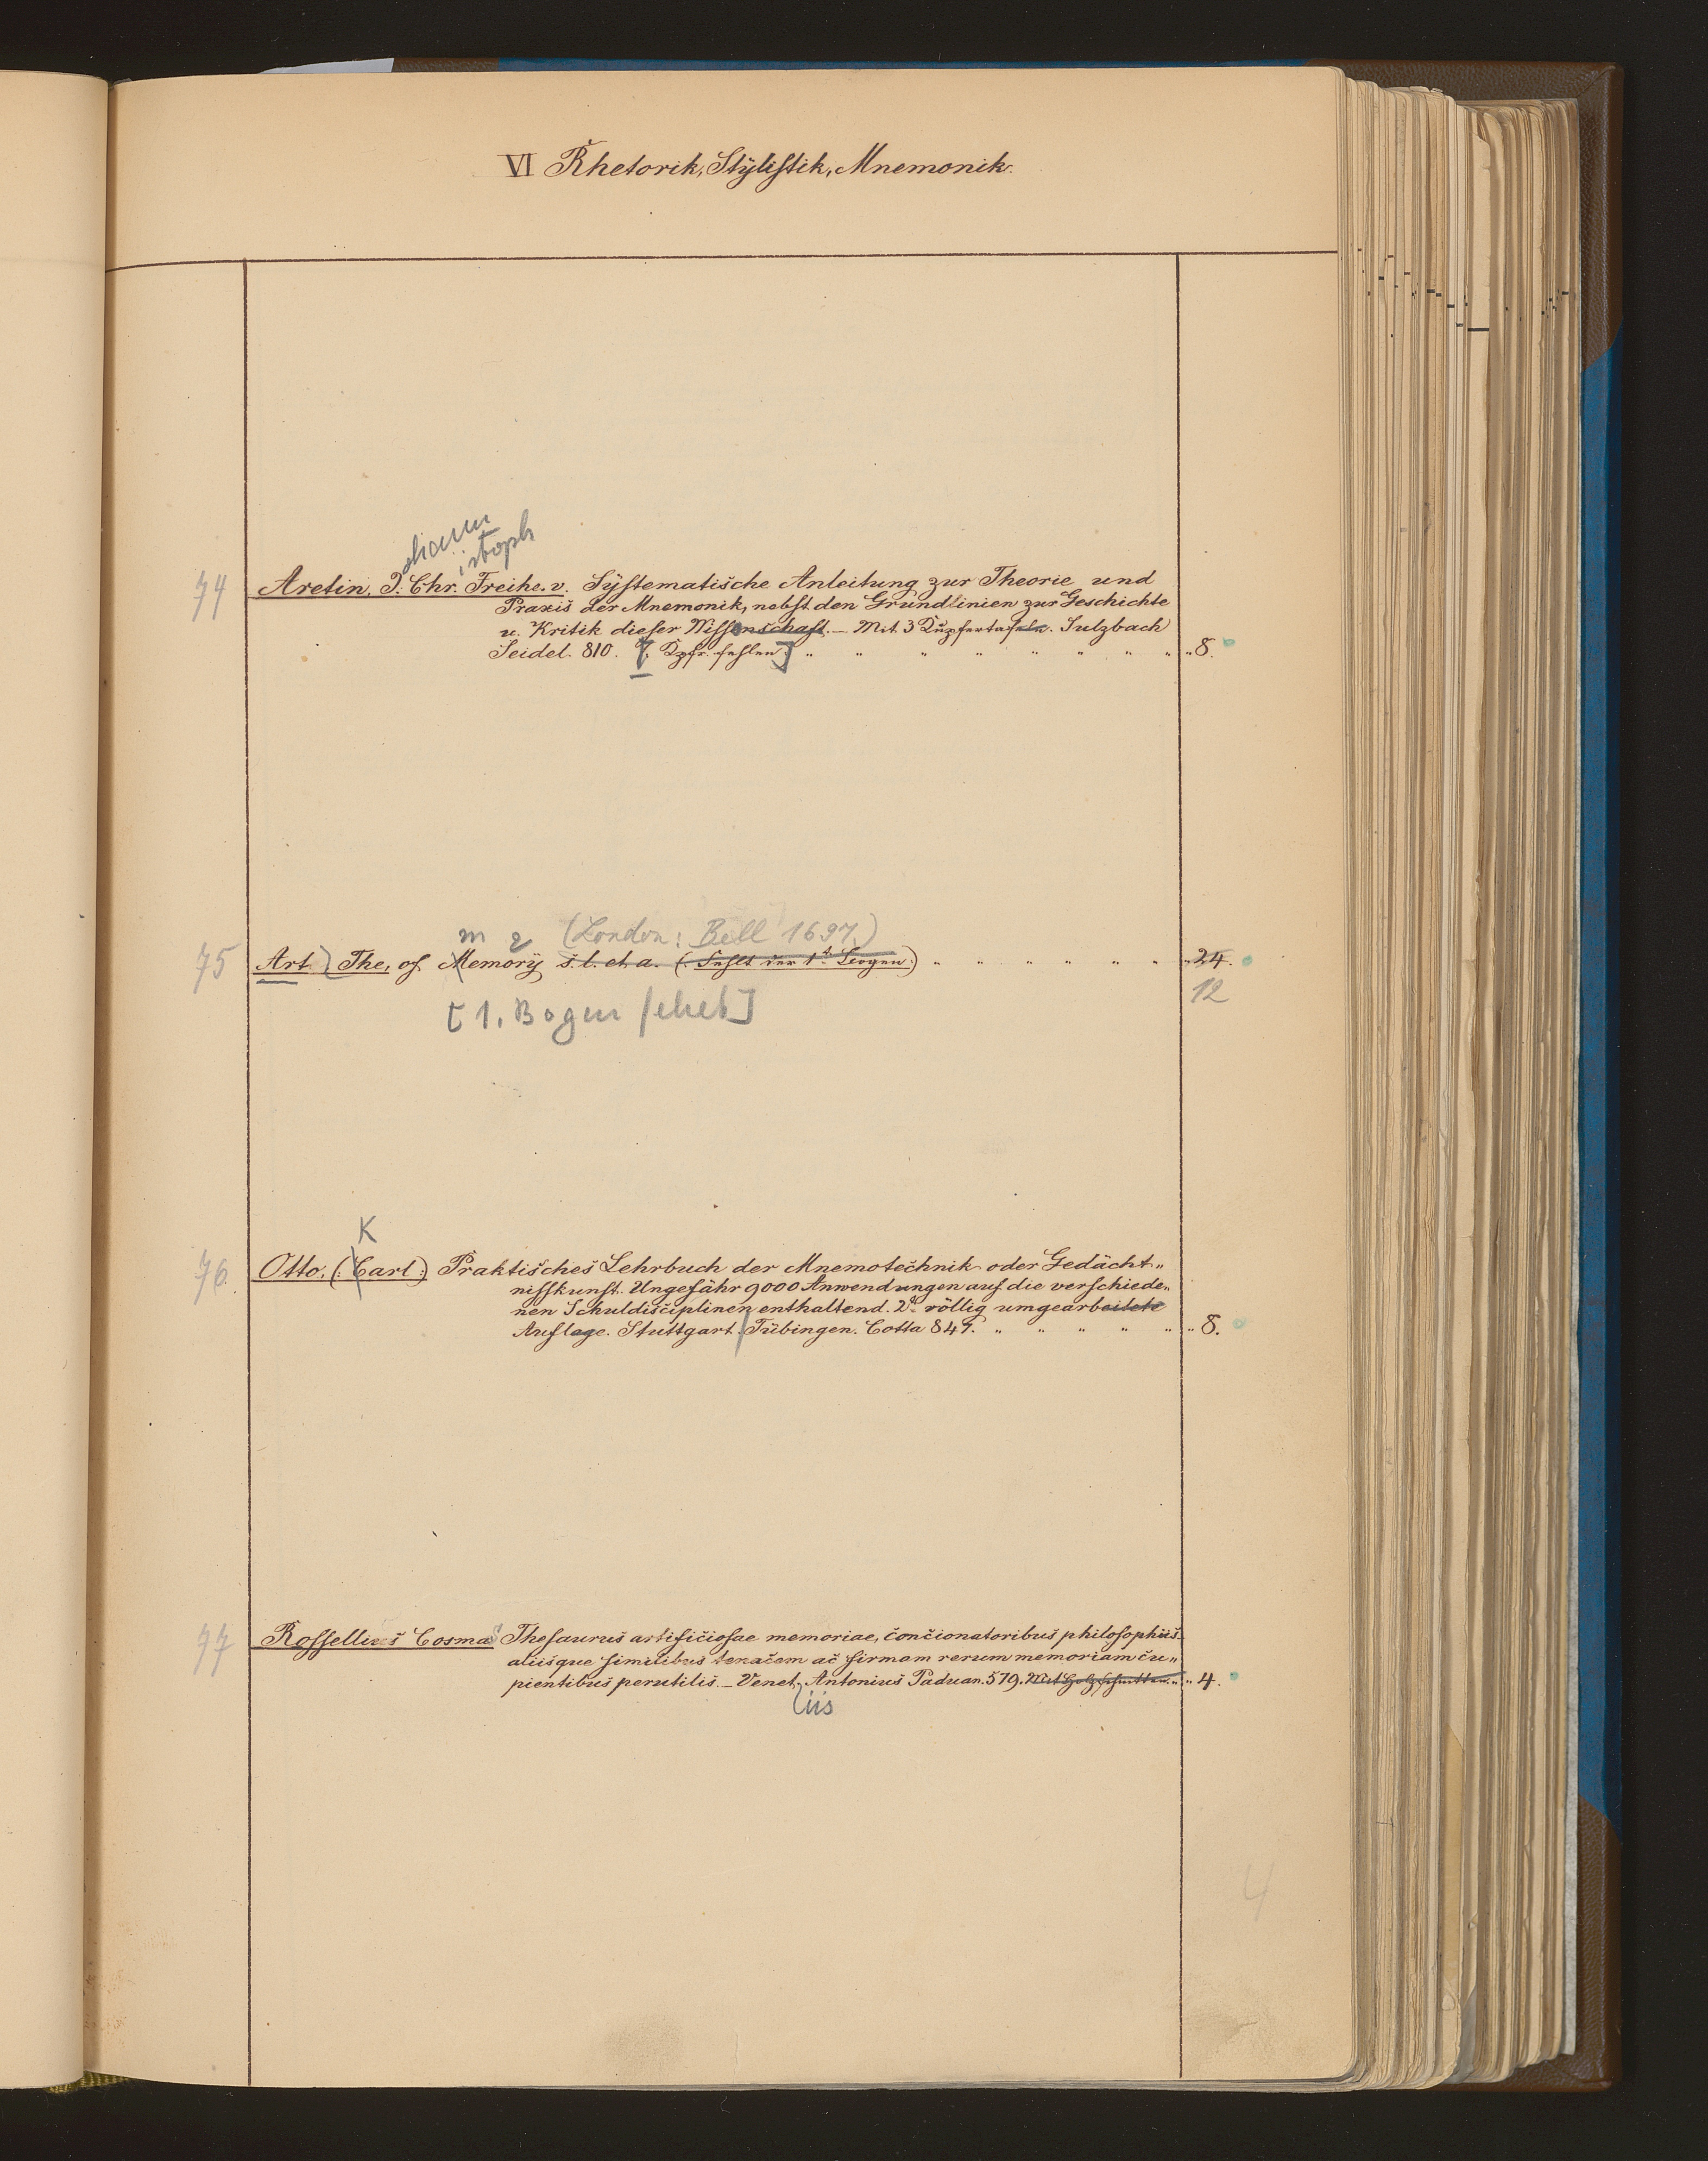 VI Rhetorik, Stylistik, Mnemonik.
ohann
istoph
74 Aretin, J. Chr. Freihe. v. Systematische Anleitung zur Theorie und
Praxis der Mnemonik, nebst den Grundlinien zur Geschichte
u. Kritik dieser Wissenschaft. — Mit 3 Kupfertafeln. Sulzbach
Seidel. 810. [Kpfr. fehlen] „ „ „ „ „ „ „ „ „ 8.
m 2 (London: Bell 1697.)
75 Art) The, of Memory s. l. et a. (: Fehlt der 1te Bogen:) „ „ „ „ „ „ „ 24.
12
[1. Bogen fehlt]
K
76. Otto. (: Carl :) Praktisches Lehrbuch der Mnemotechnik oder Gedächt„
nisskunst. Ungefähr 9000 Anwendungen auf die verschiede„
nen Schuldisciplinen enthaltend. 2te völlig umgearbeitete
Auflage. Stuttgart / Tübingen. Cotta 847. „ „ „ „ „ „ 8.
77 Rossellius Cosmas Thesaurus artificiosae memoriae, concionatoribus philosophiis
aliisque similibus tenacem ac firmam rerum memoriam cu„
pientibus perutilis. — Venet. Antonius Paduan. 579. Mit Holzschnitten. „ „ 4.
iis
4